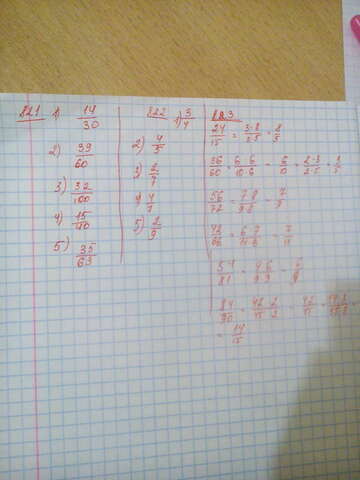 821 1) 14/30
2) 39/60
3) 32/100
4) 15/40
5) 35/63
822 1) 3/4
2) 4/5
3) 2/7
4) 4/7
5) 2/9
823
24/15 = 3·8/3·5 = 8/5
36/60 = 6·6/10·6 = 6/10 = 2·3/2·5 = 3/5
56/72 = 7·8/9·8 = 7/9
42/66 = 6·7/11·6 = 7/11
54/81 = 6/9
84/90 = 42·2/45·2 = 42/45 =
= 14/15